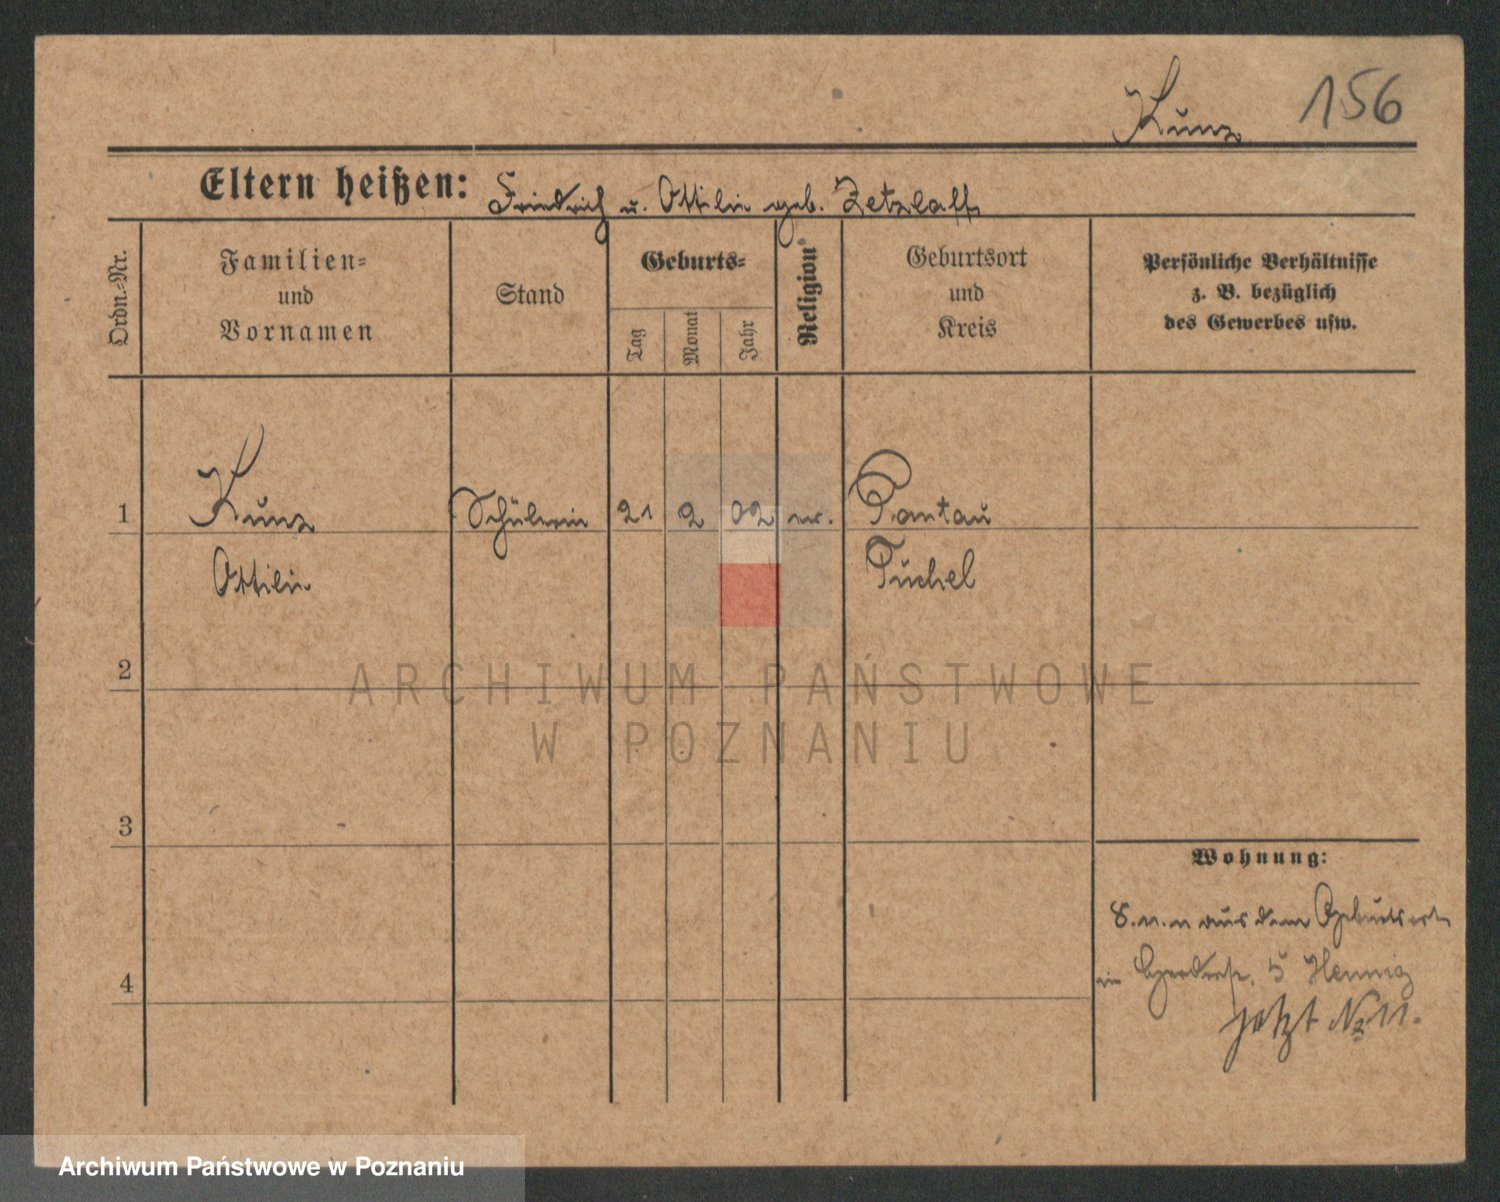 Kunz 156
Eltern heißen: Friedrich u. Ottilie geb. Zetzlaff
Ordn.-Nr.
Familien-
und
Vornamen
Stand
Geburts-
Tag
Monat
Jahr
Religion
Geburtsort
und
Kreis
Persönliche Verhältnisse
z. B. bezüglich
des Gewerbes usw.
1 Kunz Schülerin 21 2 02 ev. Pantau
Ottilie Tuchel
2
ARCHIWUM PAŃSTWOWE
W POZNANIU
3
Wohnung:
aus dem Geburtsort
4
in 5 Hennig
jetzt No 11.
Archiwum Państwowe w Poznaniu